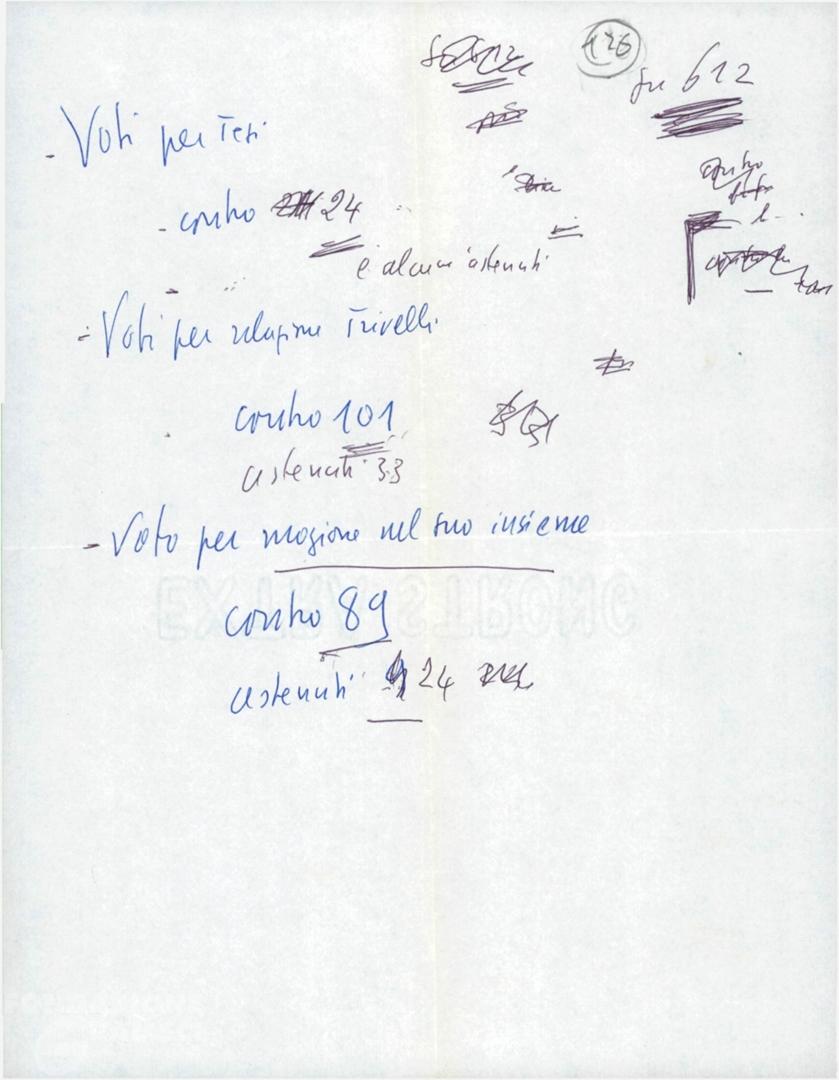 126
su 612
- Voti per Tesi
- contro 24
e alcuni astenuti
- Voti per relazione Trivelli
contro 101
astenuti 33
- Voto per mozione nel suo insieme
EXTRA STRONG
contro 89
astenuti 24